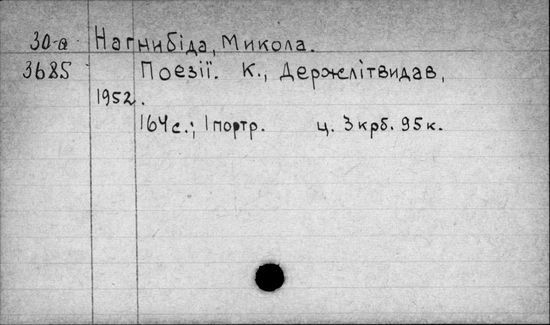 30-а Нагнибіда, Микола.
3685 Поезії. К., Держлітвидав,
1952.
164 с.; 1 портр. ц. 3 крб. 95 к.